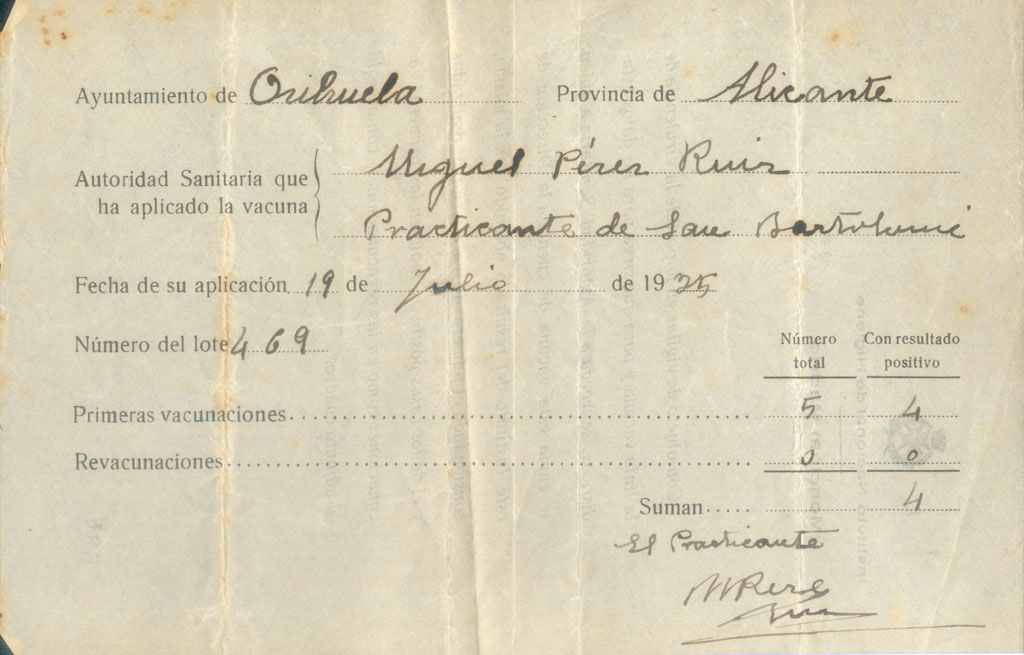 Ayuntamiento de Orihuela Provincia de Alicante
Autoridad Sanitaria que ha aplicado la vacuna
Miguel Pérez Ruiz
Practicante de San Bartolomé
Fecha de su aplicación 19 de Julio de 1925
Número del lote 469
Número total Con resultado positivo
Primeras vacunaciones 5 4
Revacunaciones 0 0
Suman 4
El Practicante
MPerez